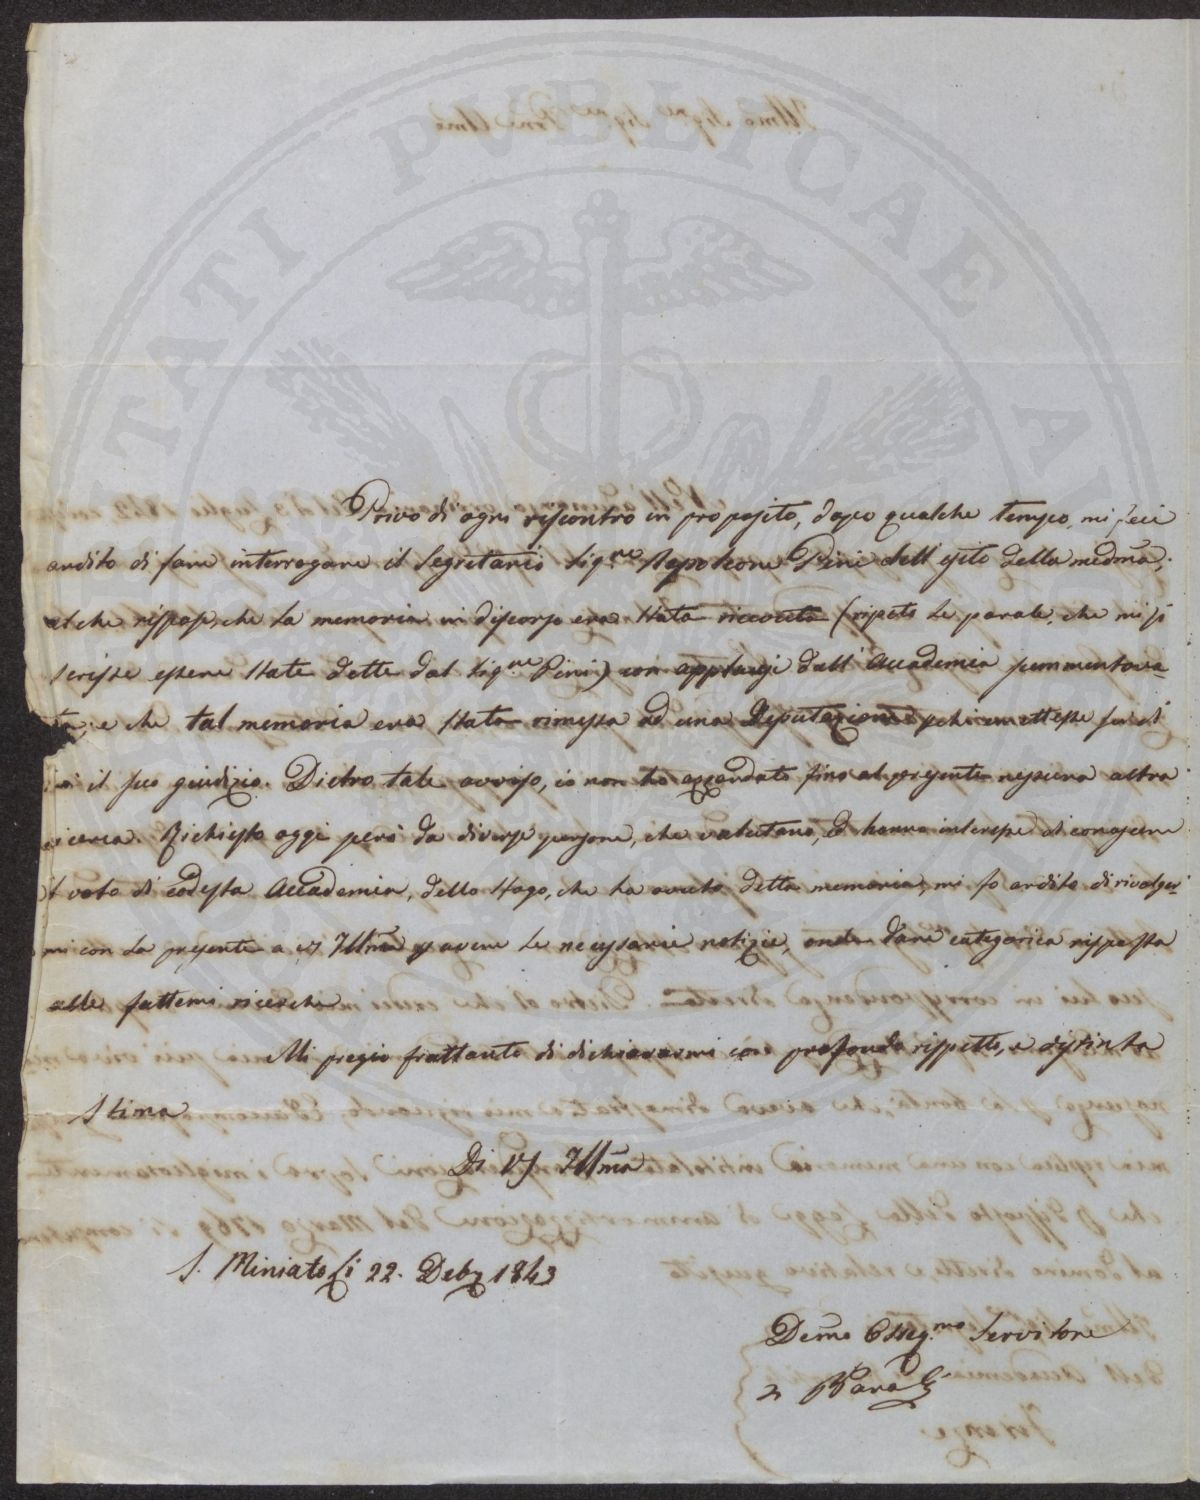 TATI PUBLICAE A
Privo di ogni riscontro in proposito, dopo qualche tempo, mi feci
ardito di fare interrogare il Segretario Sig.re Napoleone Pini dell'esito della medma;
al che rispose, che la memoria in discorso era stata ricevuta (ripeto le parole, che mi si
scrisse essere state dette dal Sig.re Pini) con applausi dall'Accademia summentova-
ta, e che tal memoria era stata rimessa ad una Deputazione, perchè emettesse su di
il suo giudizio. Dietro tale avviso, io non ho azzardato fino al presente nessuna altra
ricerca. Richiesto oggi però da diverse persone, che valutano, ed hanno interesse di conoscere
il voto di codesta Accademia, dello sfogo, che ha avuto detta memoria, mi fo ardito di rivolger-
mi con la presente a VS Illma p avere le necessarie notizie, onde dare categorica risposta
alle fattemi ricerche.
Mi pregio frattanto di dichiararmi con profondo rispetto, e distinta
stima
Di VS Illma
S. Miniato Li 22. Debre 1843
Demo Osseq.mo Servitore